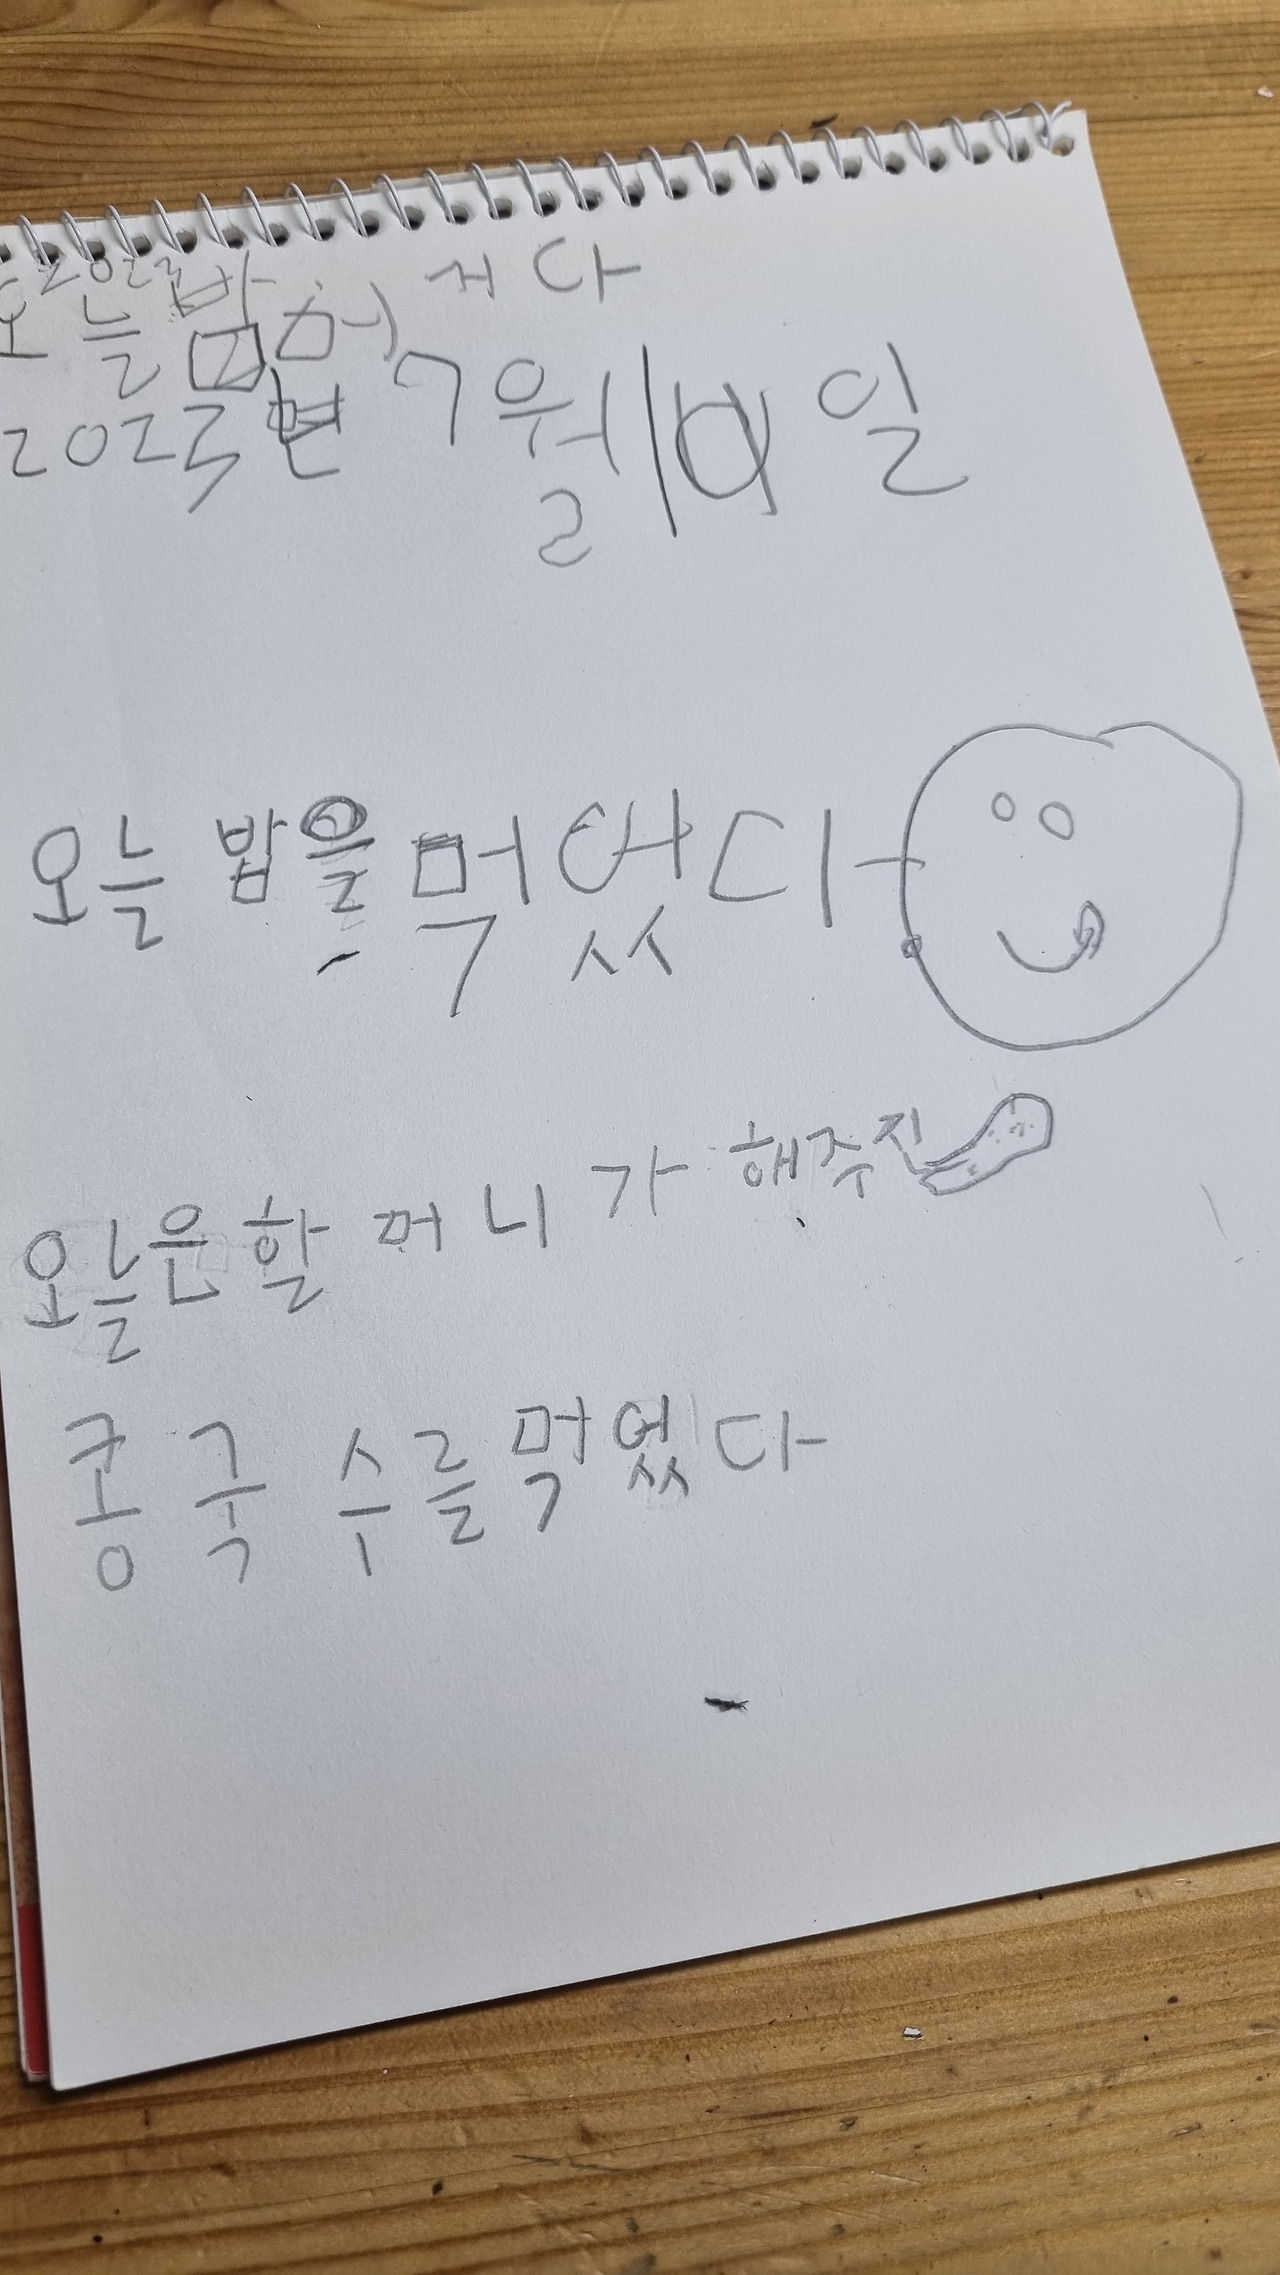 오늘밥
2025년 7월 일
오늘 밥을 먹었다
오늘은할머니가 해주진
콩국수를먹었다